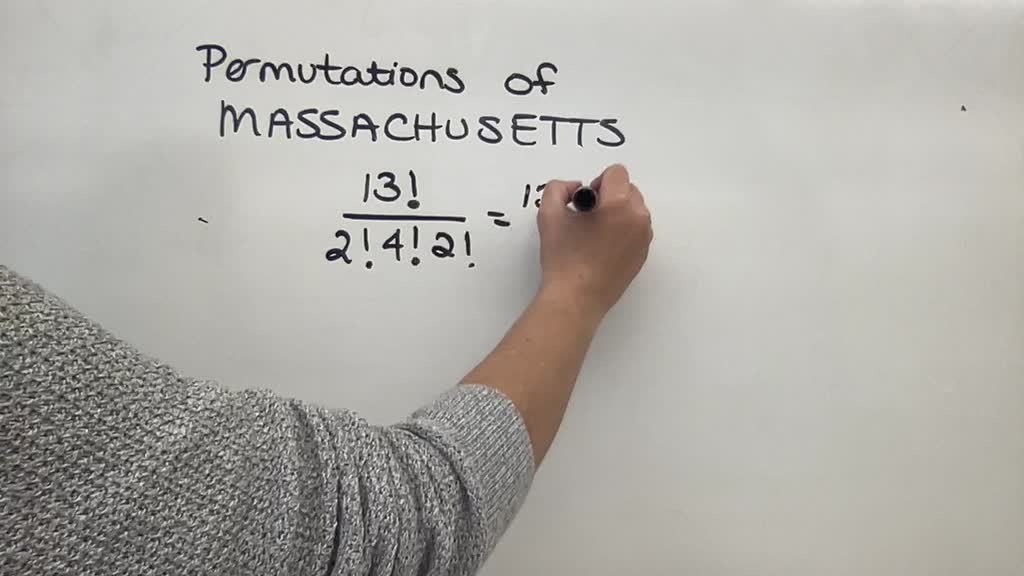 Permutations of
MASSACHUSETTS
13!
2! 4! 2!
=